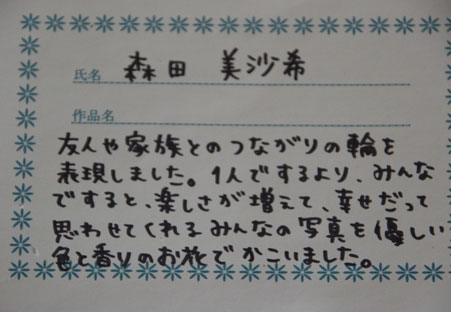 氏名 森田 美沙希
作品名
友人や家族とのつながりの輪を
表現しました。1人でするより、みんな
ですると、楽しさが増えて、幸せだって
思わせてくれるみんなの写真を優しい
色と香りのお花でかこいました。